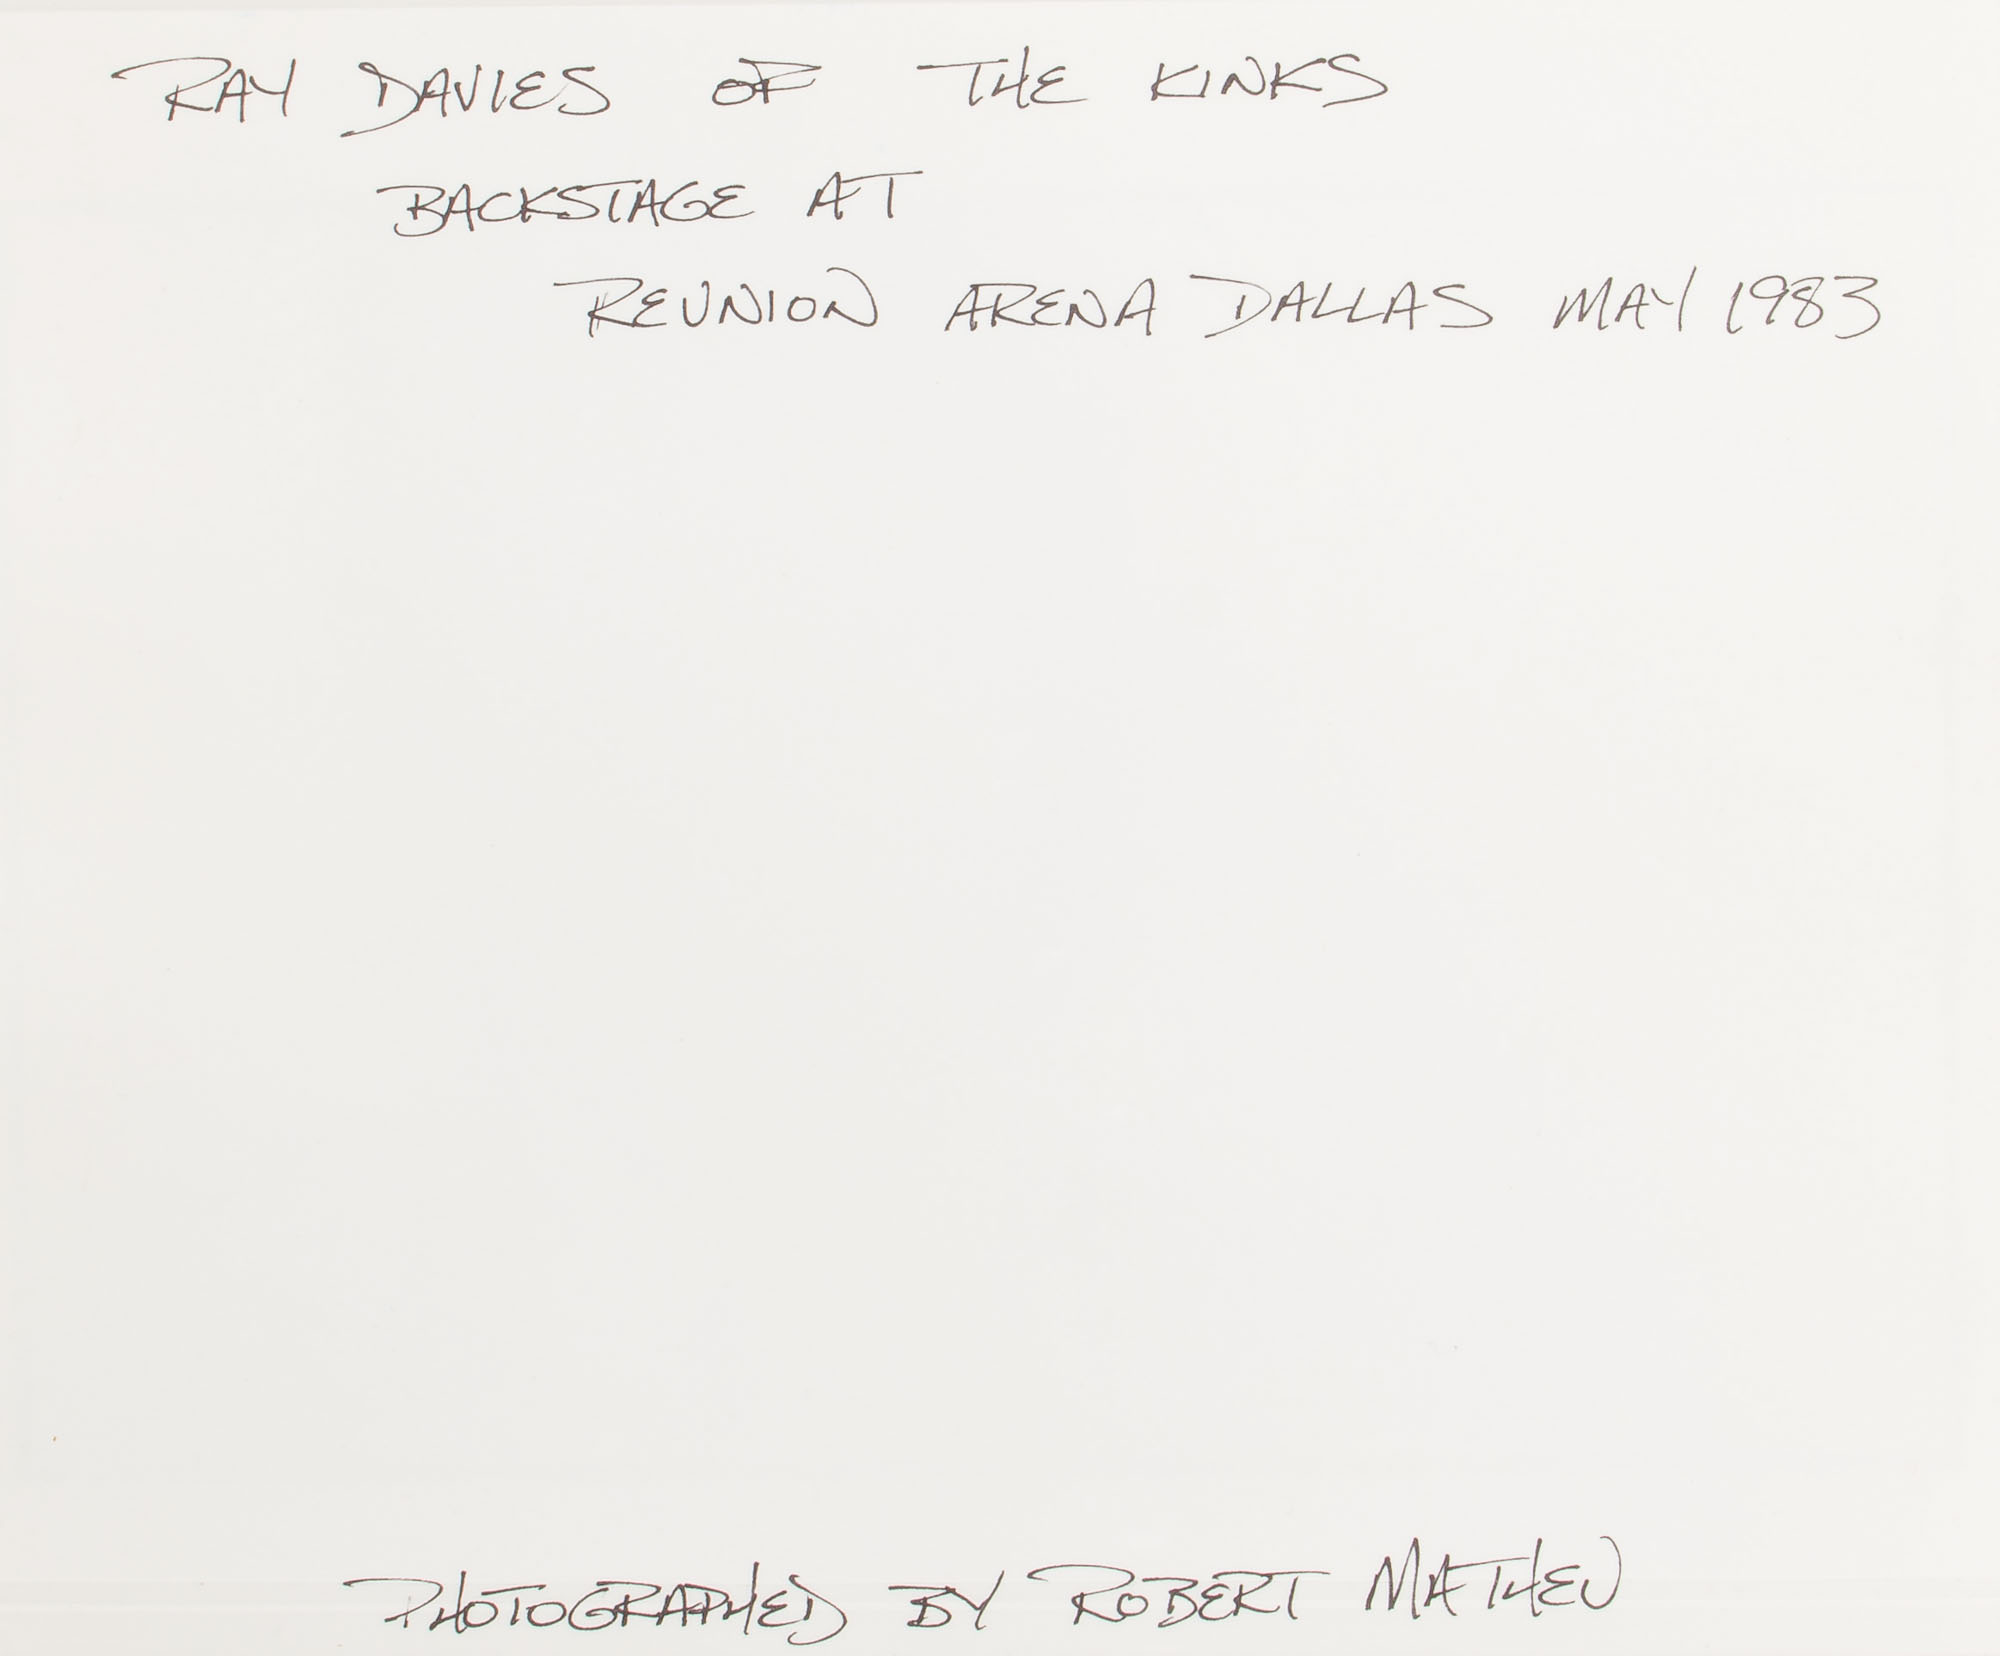 RAY DAVIES OF THE KINKS
BACKSTAGE AT
REUNION ARENA DALLAS MAY 1983
PHOTOGRAPHED BY ROBERT MATHEU